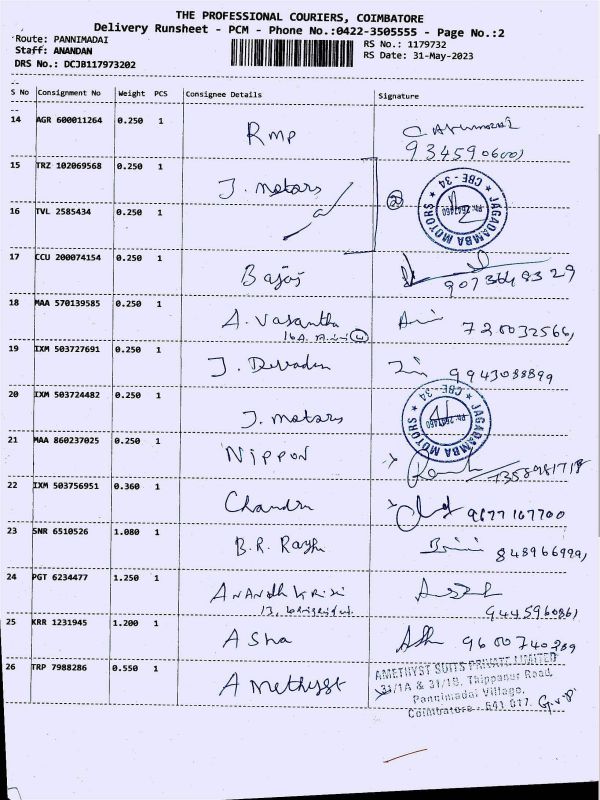 THE PROFESSIONAL COURIERS, COIMBATORE
Delivery Runsheet - PCM - Phone No.:0422-3505555 - Page No.:2
Route: PANNIMADAI
RS No.: 1179732
Staff: ANANDAN
RS Date: 31-May-2023
DRS No.: DCJB117973202
S No Consignment No Weight PCS Consignee Details Signature
14 AGR 600011264 0.250 1 Rmp
15 TRZ 102069568 0.250 1 J. motors
JAGADAMBA MOTORS ★ CBE-34 ★
16 TVL 2585434 0.250 1
17 CCU 200074154 0.250 1 Bajaj
18 MAA 570139585 0.250 1 A. Vasantha
19 IXM 503727691 0.250 1 J. Devadan 9943088899
20 IXM 503724482 0.250 1 J. motors
JAGADAMBA MOTORS ★ CBE-34 ★
21 MAA 860237025 0.250 1 NIPPON
22 IXM 503756951 0.360 1 Chandru 9677167700
23 SNR 6510526 1.080 1 B.R. Raghu
24 PGT 6234477 1.250 1
25 KRR 1231945 1.200 1 Asha
26 TRP 7988286 0.550 1 Amethyst
AMETHYST SUITS PRIVATE LIMITED
31/1A & 31/1B, Thippanur Road,
Pannimadai Village,
Coimbatore - 641 017.